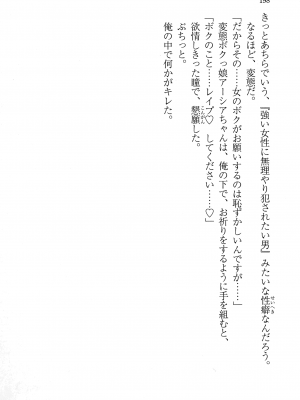 198
きっとあちらでいう、『強い女性に無理やり犯されたい男』みたいな性癖なんだろう。
なるほど、変態だ。
「だからその……女のボクがお願いするのは恥ずかしいんですが……」
変態ボクっ娘アーシアちゃんは、俺の下で、お祈りをするように手を組むと、
「ボクのこと……レイプ♡　してください……♡」
欲情しきった瞳で、懇願した。
ぷちっと。
俺の中で何かがキレた。